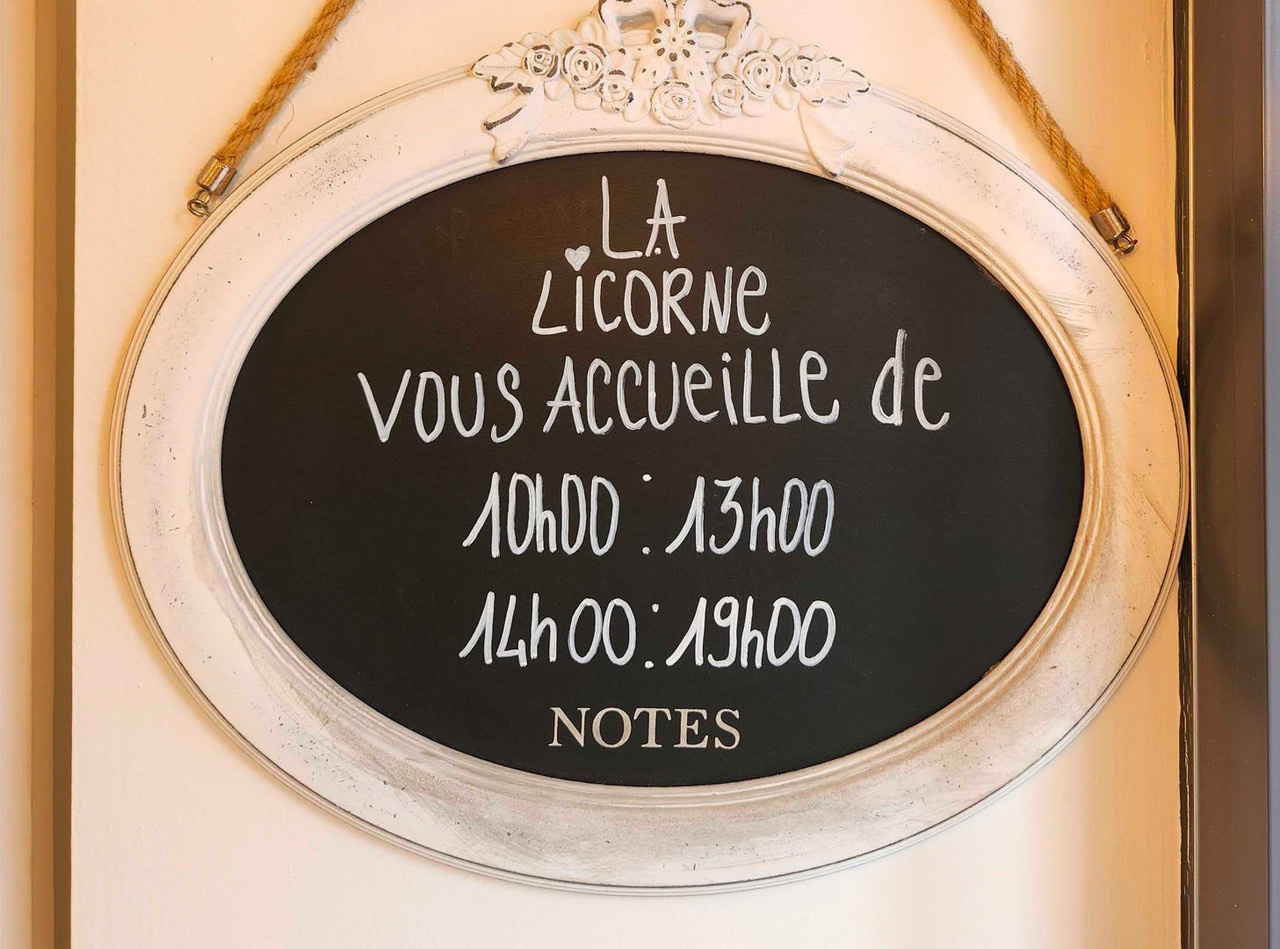 LA
LiCORNe
VOUS ACCUeiLLe de
10h00 : 13h00
14h00 : 19h00
NOTES